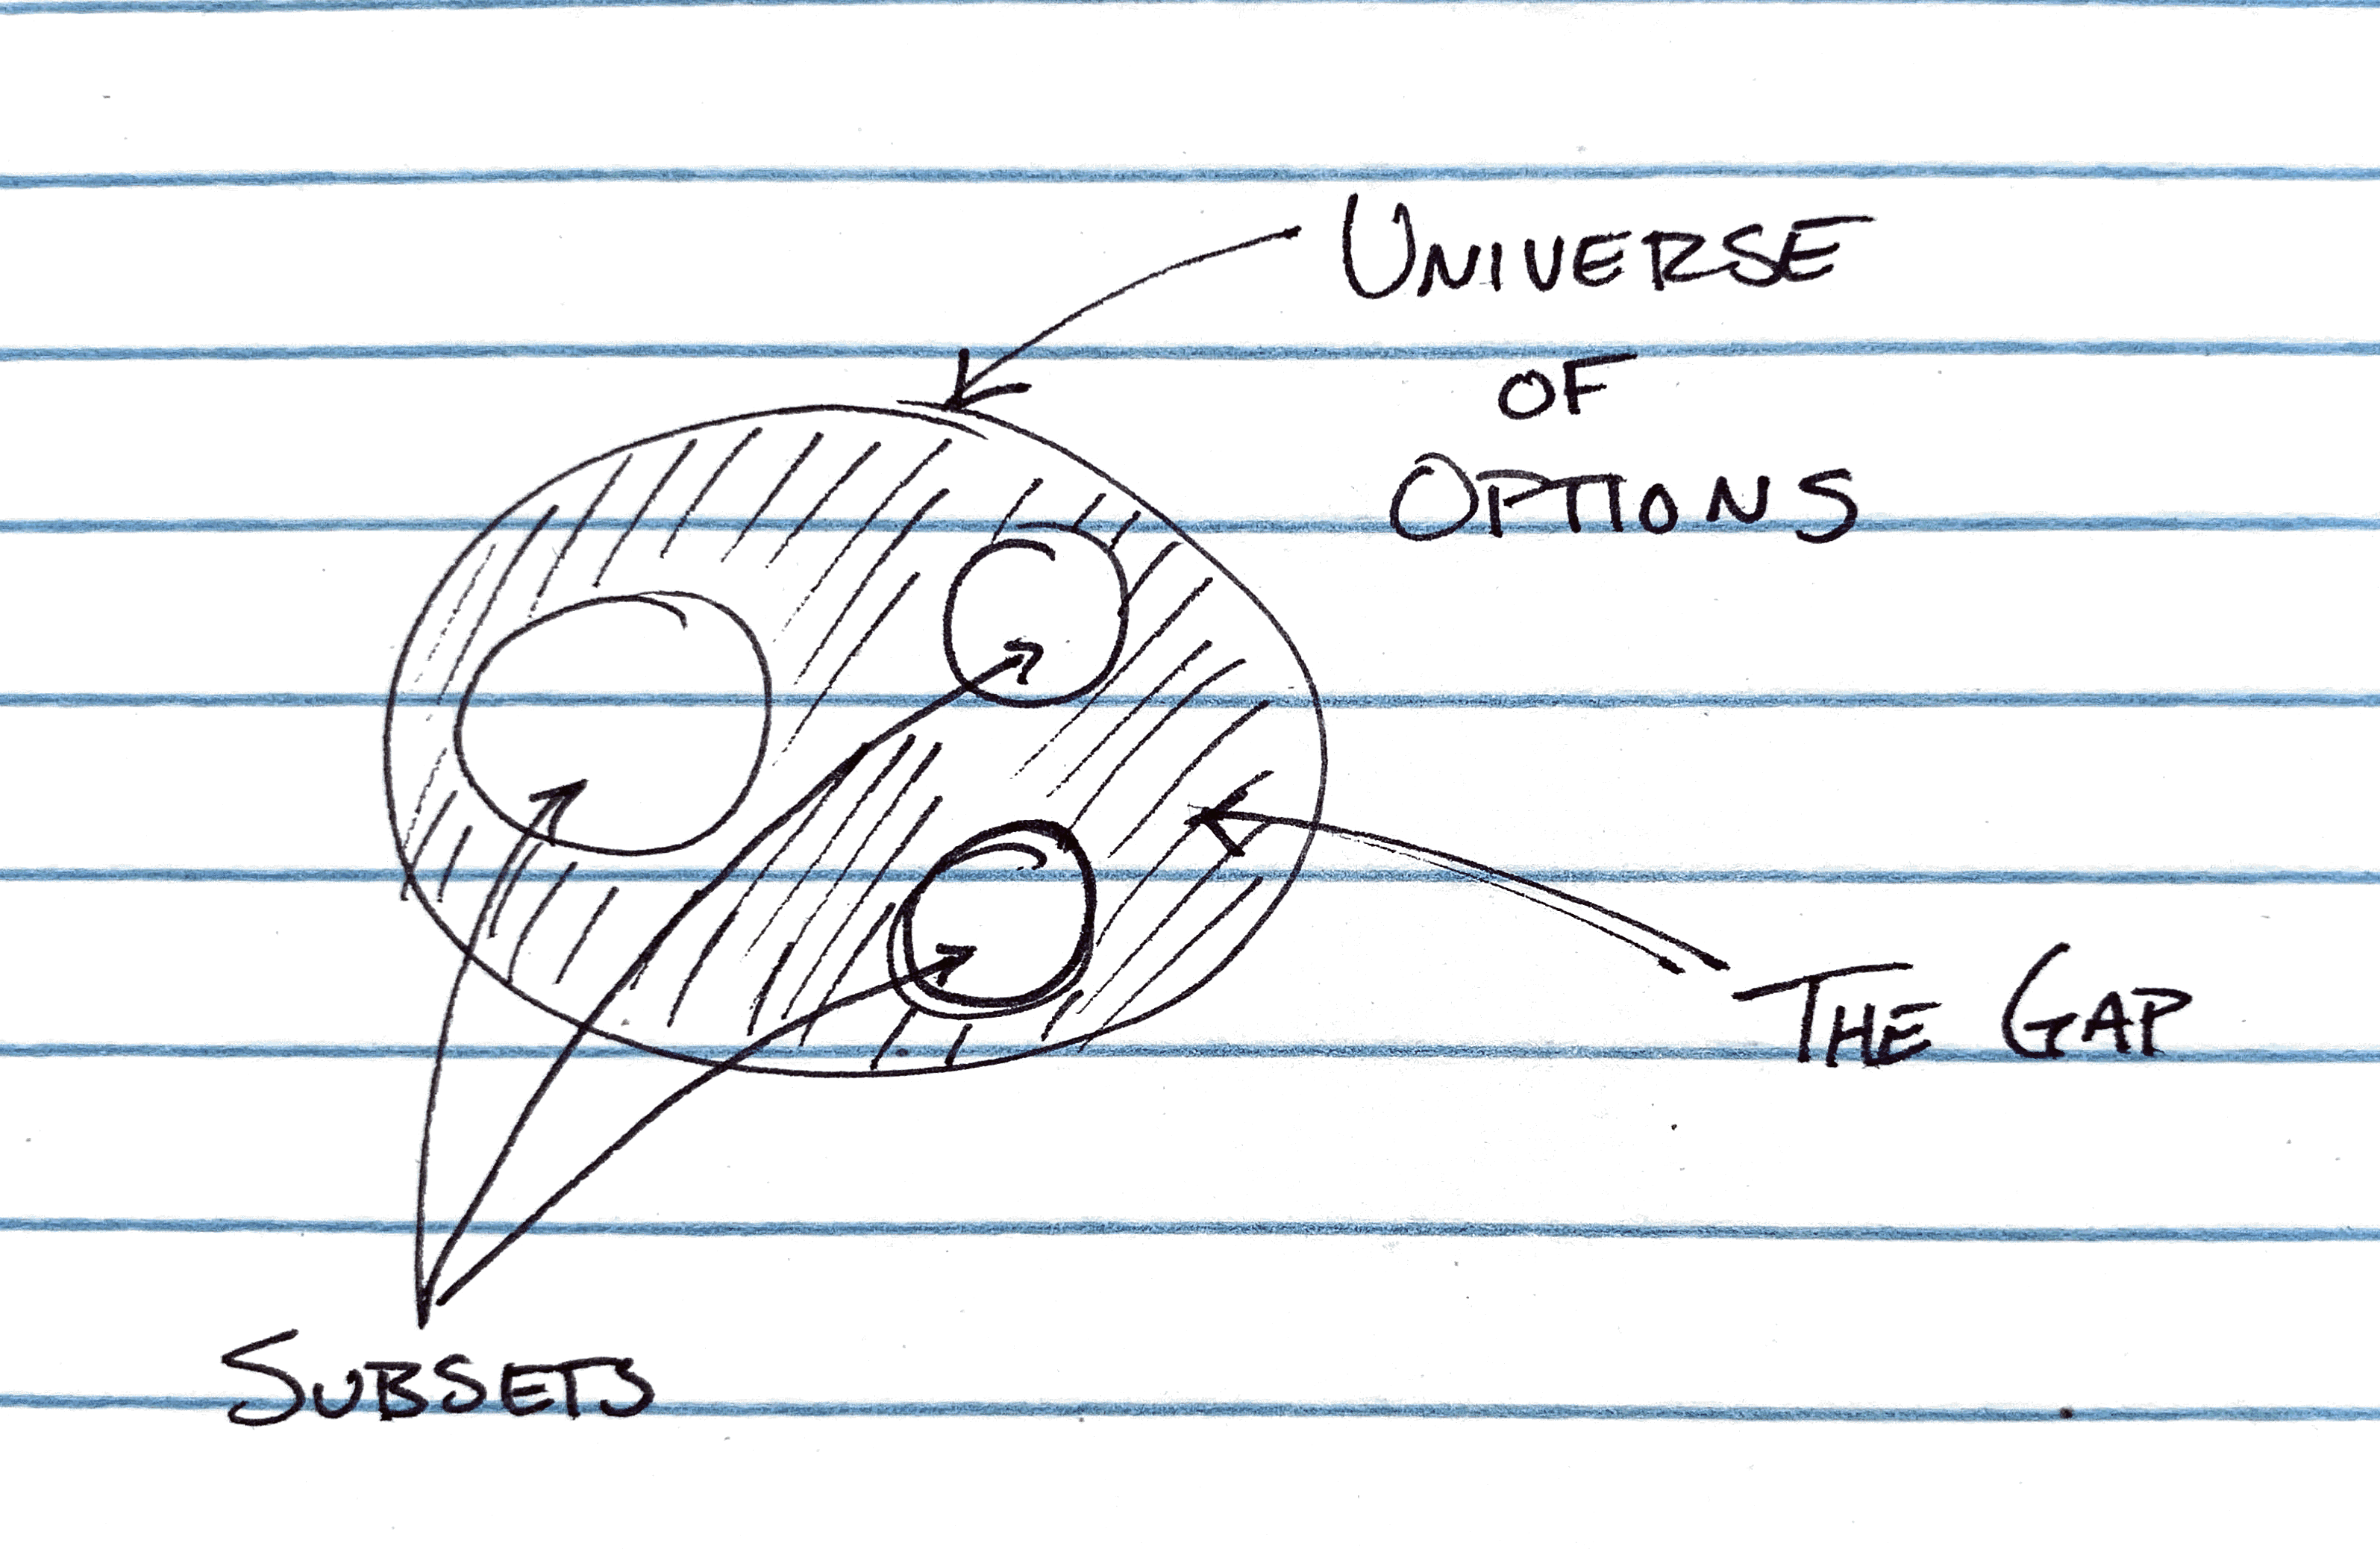 UNIVERSE
OF
OPTIONS
THE GAP
SUBSETS